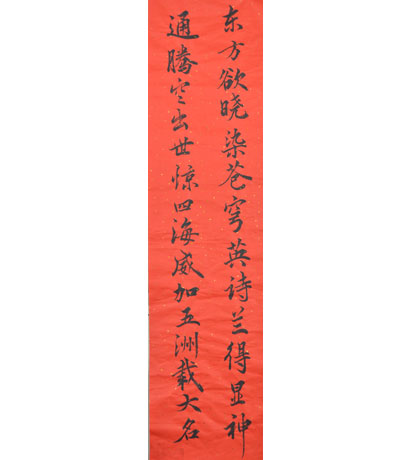 东方欲晓染苍穹英诗兰得显神
通腾空出世惊四海威加五洲载大名